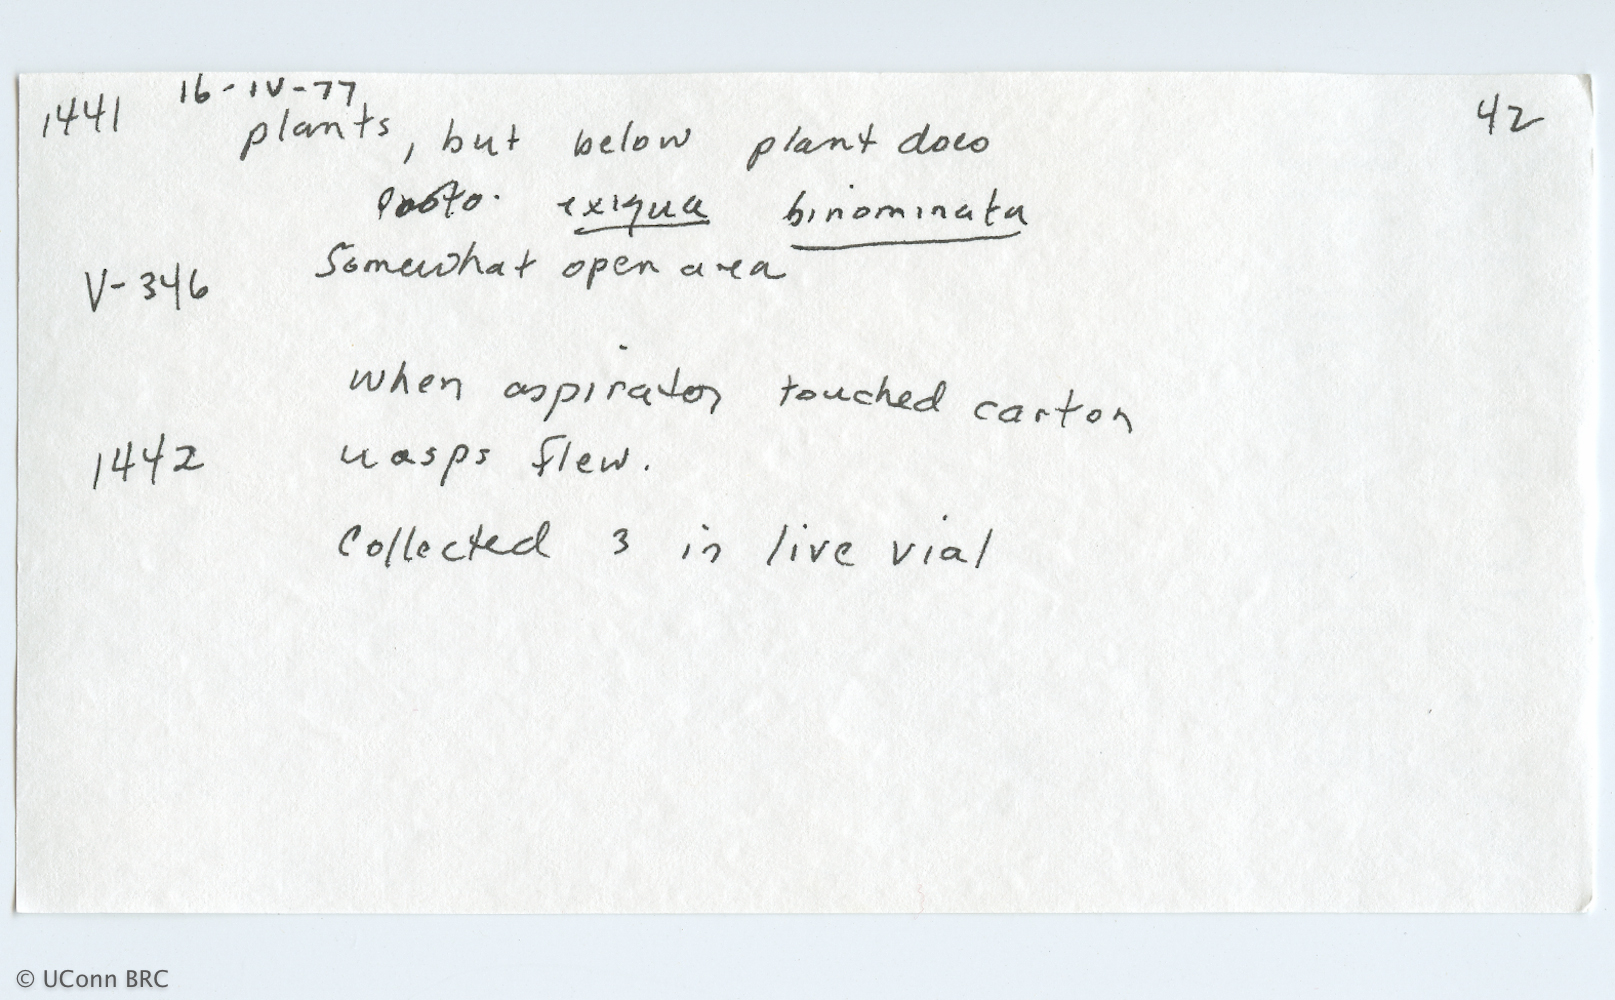 1441 16-IV-77 42
plants, but below plant does
Proto. exigua binominata
V-346 Somewhat open area
when aspirator touched carton
1442 wasps flew.
Collected 3 in live vial
© UConn BRC